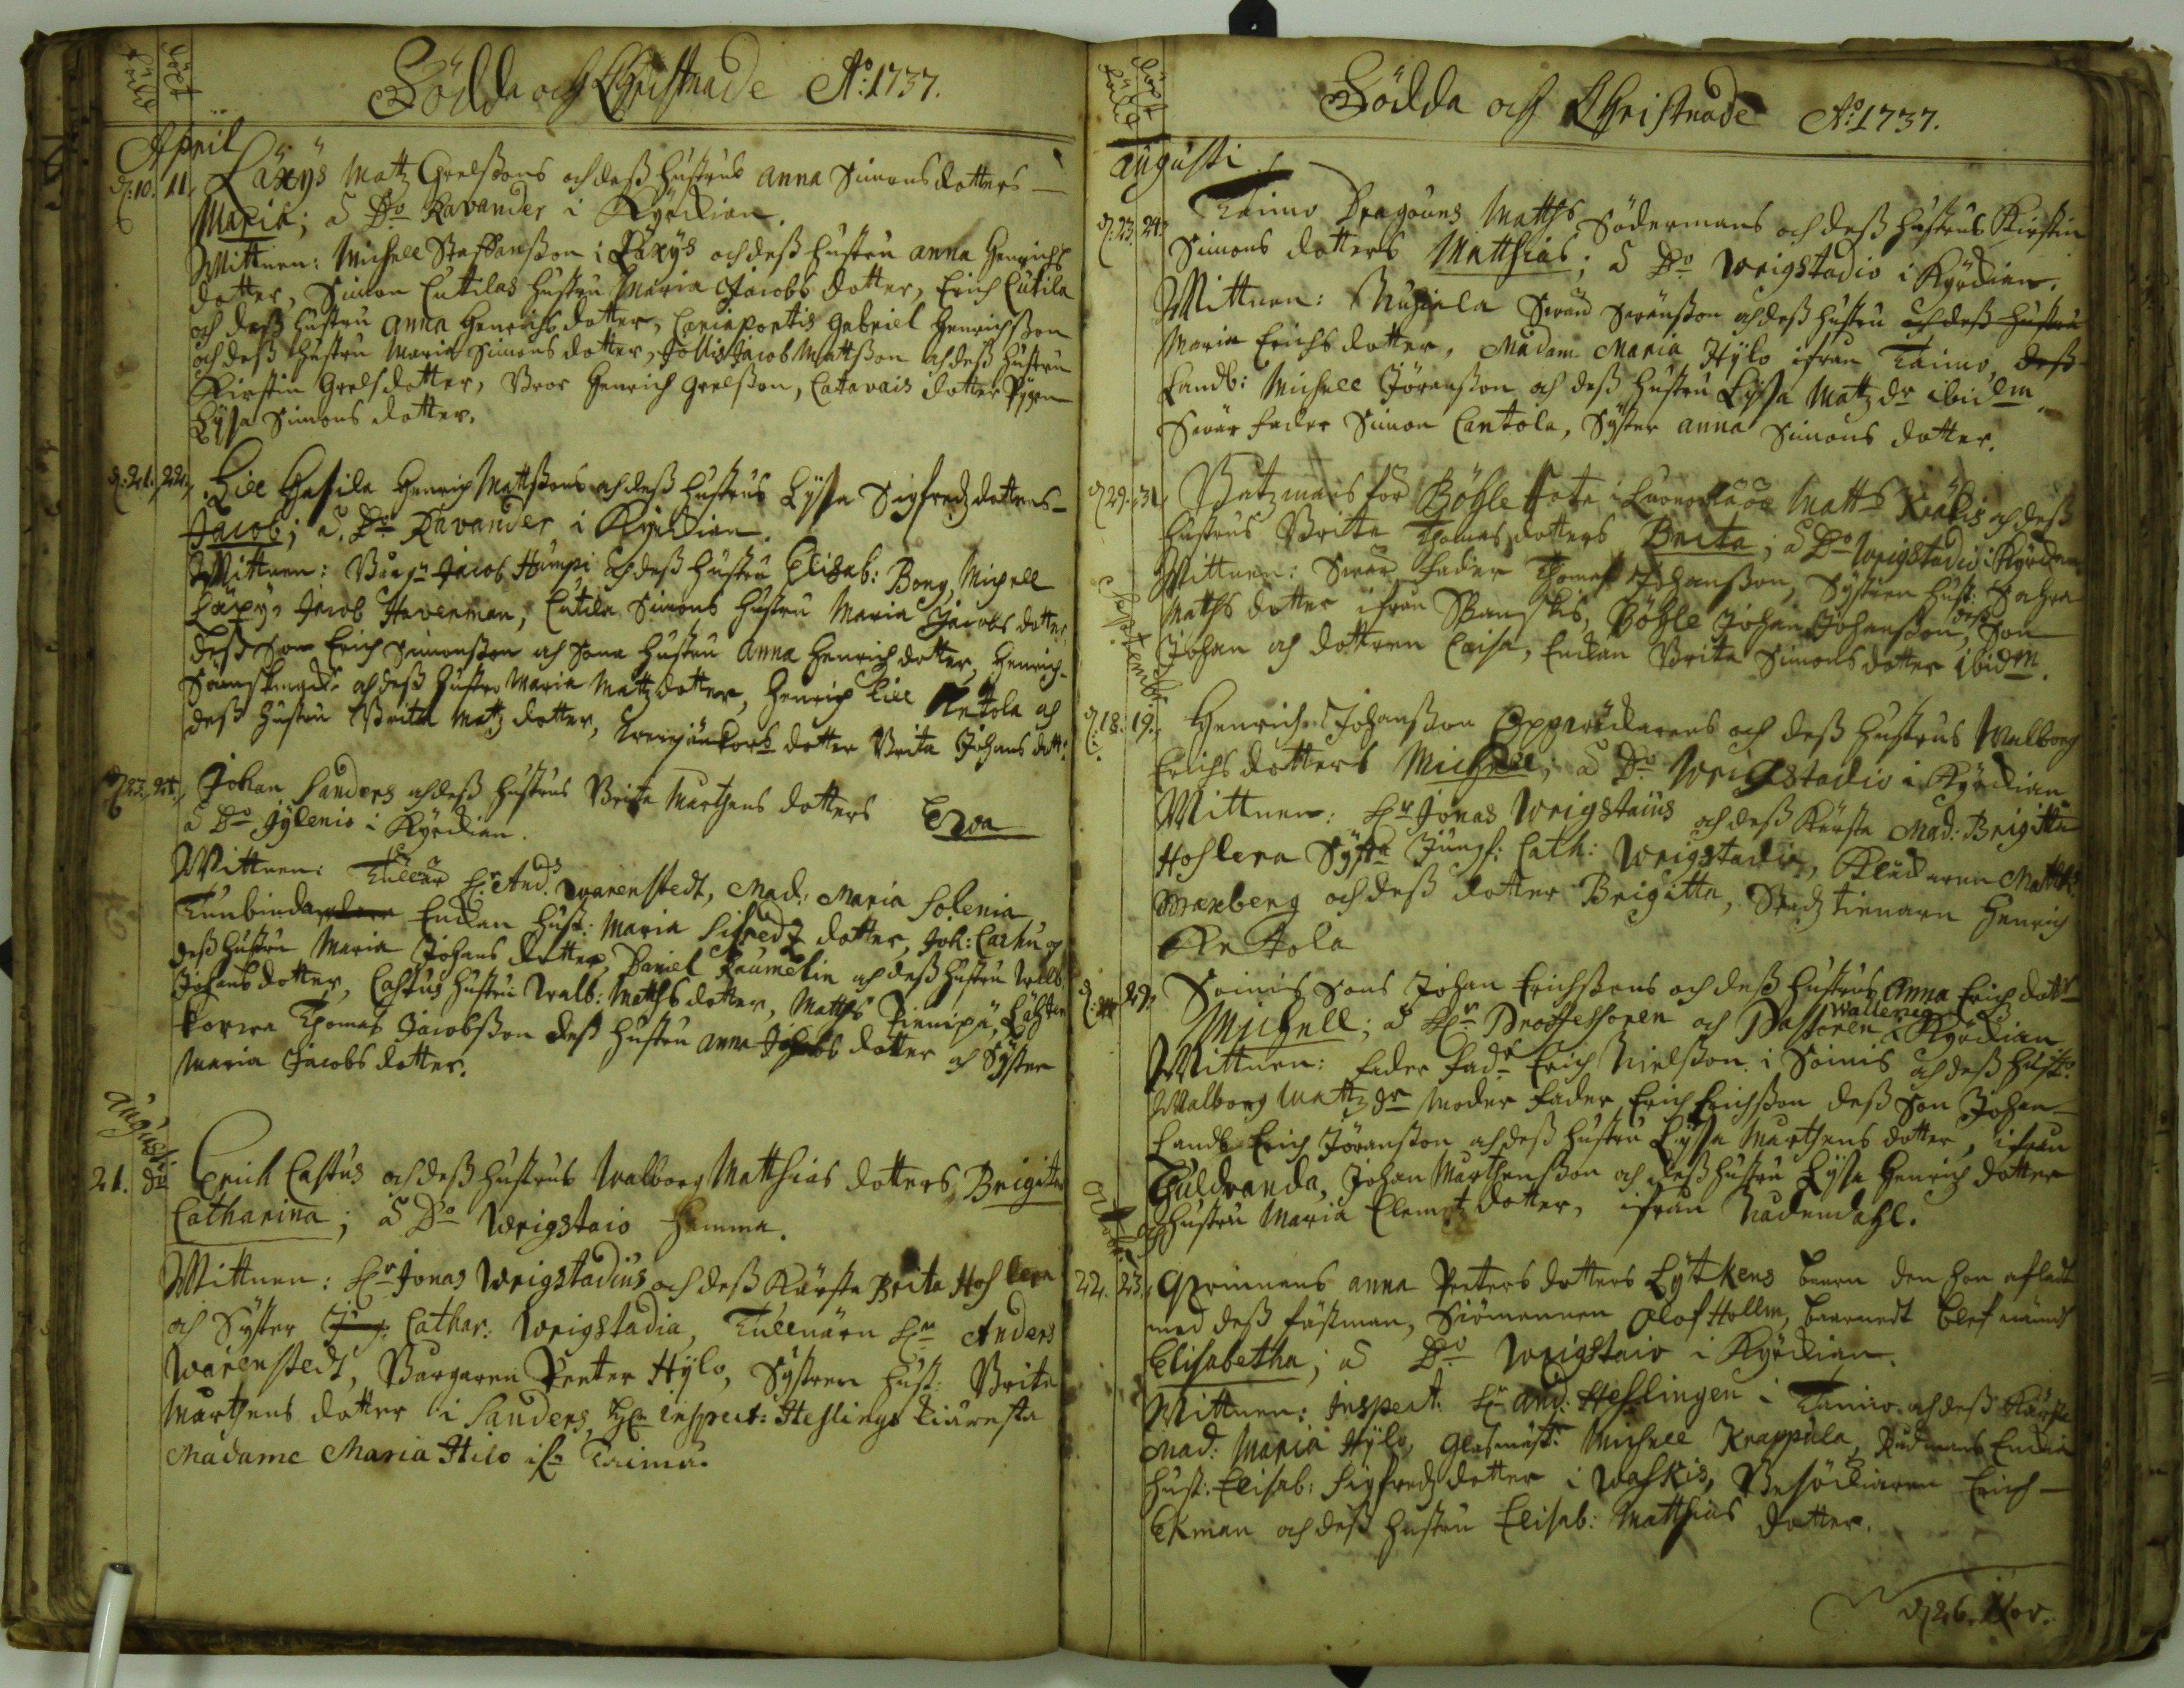 Födda och Christnade A:o 1737.
född
döpt
April
d: 10. 11. Läxys Matz Grelßons och deß hustrus Anna Simonsdotters
Maria; a D:o Ravander i Kyrckian.
Wittnen: Michell Staffanßon i Läxys och deß hustru Anna Henrichs
dotter, Simon Cutilas hustru Maria Jacobs dotter, Erich Cutila
och deß hustru Anna Henrichsdotter, Gabriel Henrichßon
och deß hustru Maria Simonsdotter, Jollis Jacob Mattßon och deß hustru
Kirstin Grelsdotter, Bror Henrich Grelßon, Catavais dotter Pigan
Lysa Simons dotter.
d: 21. 22. Lill Hasila Henrich Mattßons och deß hustrus Lysa Sigfredz dotters
Jacob; a D:o Ravander i Kyrckian.
Wittnen: Jacob Humpi och deß hustru Elisab: Bong, Michell
Läxys Jacob Haverman, Cutila Simons hustru Maria Jacobs dotter
deß Son Erich Simonßon och Sona hustru Anna Henrichdotter, Henrich
och deß hustru Maria Matzdotter, Henrich Lill Ketola och
deß hustru Brita Matz dotter, dotter Brita Johans dott:
d: 23. 24. Johan Sanders och deß hustrus Brita Marthens dotters Ewa
a D:o Jylenio i Kyrckian.
Wittnen: H:r And: Warenstedt, Mad: Maria Solenia,
Tunbindar Enckan Hust: Maria Sifredz dotter, Joh: Carhu och
deß hustru Maria Johans dotter, Daniel Raumelin och deß hustru Walb:
Johans dotter, Castus hustru Walb: Matthsdotter, Matths
Thomas Jacobßon deß hustru Anna Jacobs dotter och Syster
Maria Jacobs dotter.
Augusti
21. d:o Erich Castus och deß hustrus Walborg Matthias dotters, Brigitta
Catharina; a D:o Wrigstaio hemma.
Wittnen: H:r Jonas Wrigstadius och deß Kärsta Brita Hoflera
och Syster Cathar: Wrigstadia, Tullnären H:r Anders
Warenstedt, Borgaren Peeter Hylo, Systren Hust: Brita
Marthens dotter i Sanders, H:r Inspect: Heslings Kiäresta
Madame Maria Hilo if:n Taimo.

Födda och Christnade A:o 1737.
född
döpt
Augusti
d: 23. 24. Taimo Dragouns Matths Södermans och deß hustrus Kirstin
Simons dotters Matthias; a D:o Wrigstadio i Kyrckian.
Wittnen: Swän Swänßon och deß hustru och deß hustru
Maria Erichsdotter, Madam Maria Hylo ifrån Taimo, deß
Landb: Michell Jöranßon och deß hustru Lysa Matz dr ibidm
Swär fader Simon Cantola, Syster Anna Simons dotter.
d 29. 31. Batzmans för Böhle Matts och deß
hustrus Brita Thomasdotters Brita; a D:o Wrigstadio i Kyrckian
Wittnen: Swär fader Thomas Johanßon, Systren Hust: Sahra
Matths dotter ifrån, Böhle Johan Johanßon, deß Son
Johan och dottren Caisa, Enckan Brita Simonsdotter ibidm.
Septemb:
d: 18. 19. Henrich Johanßon och deß hustrus Walborg
Erichsdotters Michell; a D:o Wrigstadio i Kyrckian
Wittnen: H:r Jonas Wrigstaius och deß Kärsta Mad: Brigitta
Hoflera Syst:r Jungf: Cath: Wrigstadia, Klockaren Matth:
Wexberg och deß dotter Brigitta, Stadz tienaren Henrich
Ketola
29. Soinis Sons Johan Erichßons och deß hustrus Anna Erichdott:r
Michell; a H:r Professoren och Pastoren Wallenius i Kyrckian
Wittnen: fader fad:r Erich Nielßon i Soinis och deß hust:
Walborg Matz dr Moder fader Erich Erichßon deß Son Johan
Landb Erich Jöranßon och deß hustru Lysa Marthens dotter, ifrån
Culdranda, Johan Marthenßon och deß hustru Lysa Henrich dotter
och hustru Maria Clemet dotter, ifrån Nådendahl.
Octob:
22. 23. Qwinnans Anna Peetersdotters Lytkens barn den hon aflat
med deß fästman, Siömannen Olof Hollm, barnet blef nämd
Elisabetha; a D:o Wrigstaio i Kyrckian.
Wittnen: Inspect: H:r And: Heslingen i Taimo och deß Kärsta
Mad: Maria Hylo, Glasmäst: Michell Krappula, Rådmans Enckia
Hust: Elisab: Sigfredz dotter i Waskis, Besökiaren Erich
Ekman och deß hustru Elisab: Matthias dotter.
d 26. Nov.